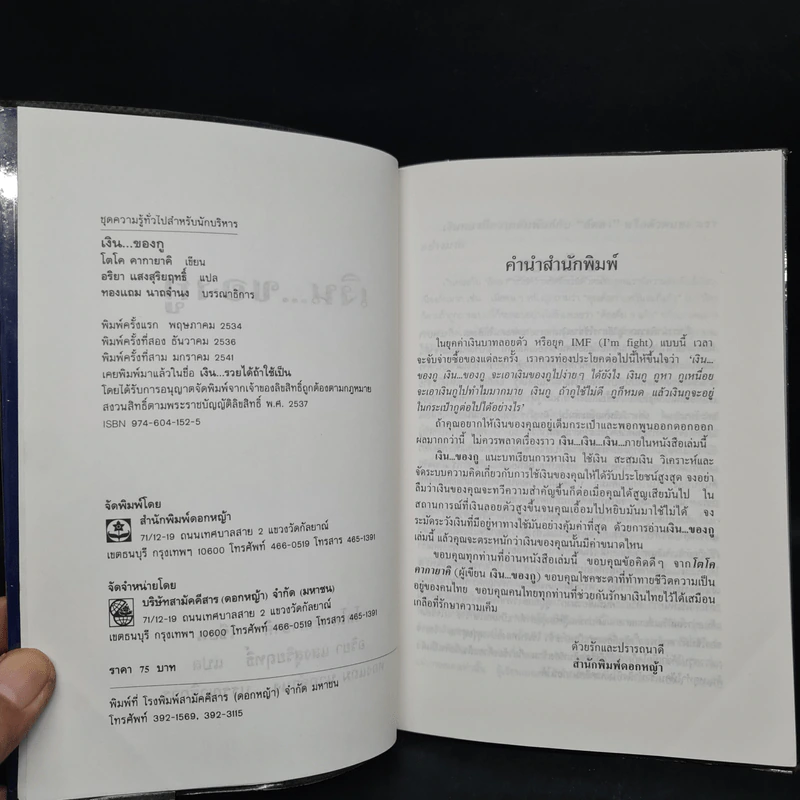 ชุดความรู้ทั่วไปสำหรับนักบริหาร
เงิน...ของกู
โตโค คากายาคี เขียน
อริยา แสงสุริยฤทธิ์ แปล
ทองแถม นาถจำนง บรรณาธิการ
พิมพ์ครั้งแรก พฤษภาคม 2534
พิมพ์ครั้งที่สอง ธันวาคม 2536
พิมพ์ครั้งที่สาม มกราคม 2541
เคยพิมพ์มาแล้วในชื่อ เงิน...รวยได้ถ้าใช้เป็น
โดยได้รับการอนุญาตจัดพิมพ์จากเจ้าของลิขสิทธิ์ถูกต้องตามกฎหมาย
สงวนสิทธิ์ตามพระราชบัญญัติลิขสิทธิ์ พ.ศ. 2537
ISBN 974-604-152-5
จัดพิมพ์โดย
สำนักพิมพ์ดอกหญ้า
71/12-19 ถนนเทศบาลสาย 2 แขวงวัดกัลยาณ์
เขตธนบุรี กรุงเทพฯ 10600 โทรศัพท์ 466-0519 โทรสาร 465-1391
จัดจำหน่ายโดย
บริษัทสามัคคีสาร (ดอกหญ้า) จำกัด (มหาชน)
71/12-19 ถนนเทศบาลสาย 2 แขวงวัดกัลยาณ์
เขตธนบุรี กรุงเทพฯ 10600 โทรศัพท์ 466-0519 โทรสาร 465-1391
ราคา 75 บาท
พิมพ์ที่ โรงพิมพ์สามัคคีสาร (ดอกหญ้า) จำกัด มหาชน
โทรศัพท์ 392-1569, 392-3115
คำนำสำนักพิมพ์
ในยุคค่าเงินบาทลอยตัว หรือยุค IMF (I'm fight) แบบนี้ เวลา
จะจับจ่ายซื้อของแต่ละครั้ง เราควรท่องประโยคต่อไปนี้ให้ขึ้นใจว่า 'เงิน...
ของกู เงิน...ของกู จะเอาเงินของกูไปง่ายๆ ได้ยังไง เงินกู กูหา กูเหนื่อย
จะเอาเงินกูไปทำไมมากมาย เงินกู ถ้ากูใช้ไม่ดี กูก็หมด แล้วเงินกูจะอยู่
ในกระเป๋ากูต่อไปได้อย่างไร'
ถ้าคุณอยากให้เงินของคุณอยู่เต็มกระเป๋าและพอกพูนออกดอกออก
ผลมากกว่านี้ ไม่ควรพลาดเรื่องราว เงิน...เงิน...เงิน...ภายในหนังสือเล่มนี้
เงิน...ของกู แนะบทเรียนการหาเงิน ใช้เงิน สะสมเงิน วิเคราะห์และ
จัดระบบความคิดเกี่ยวกับการใช้เงินของคุณให้ได้รับประโยชน์สูงสุด จงอย่า
ลืมว่าเงินของคุณจะทวีความสำคัญขึ้นก็ต่อเมื่อคุณได้สูญเสียมันไป ใน
สถานการณ์ที่เงินลอยตัวสูงขึ้นจนคุณเอื้อมไปหยิบมันมาใช้ไม่ได้ จง
ระมัดระวังเงินที่มีอยู่หาทางใช้มันอย่างคุ้มค่าที่สุด ด้วยการอ่านเงิน...ของกู
เล่มนี้ แล้วคุณจะตระหนักว่าเงินของคุณนั้นมีค่าขนาดไหน
ขอบคุณทุกท่านที่อ่านหนังสือเล่มนี้ ขอบคุณข้อคิดดีๆ จากโตโค
คากายาคี (ผู้เขียน เงิน...ของกู) ขอบคุณโชคชะตาที่ท้าทายชีวิตความเป็น
อยู่ของคนไทย ขอบคุณคนไทยทุกท่านที่ช่วยกันรักษาเงินไทยไว้ได้เสมือน
เกลือที่รักษาความเค็ม
ด้วยรักและปรารถนาดี
สำนักพิมพ์ดอกหญ้า